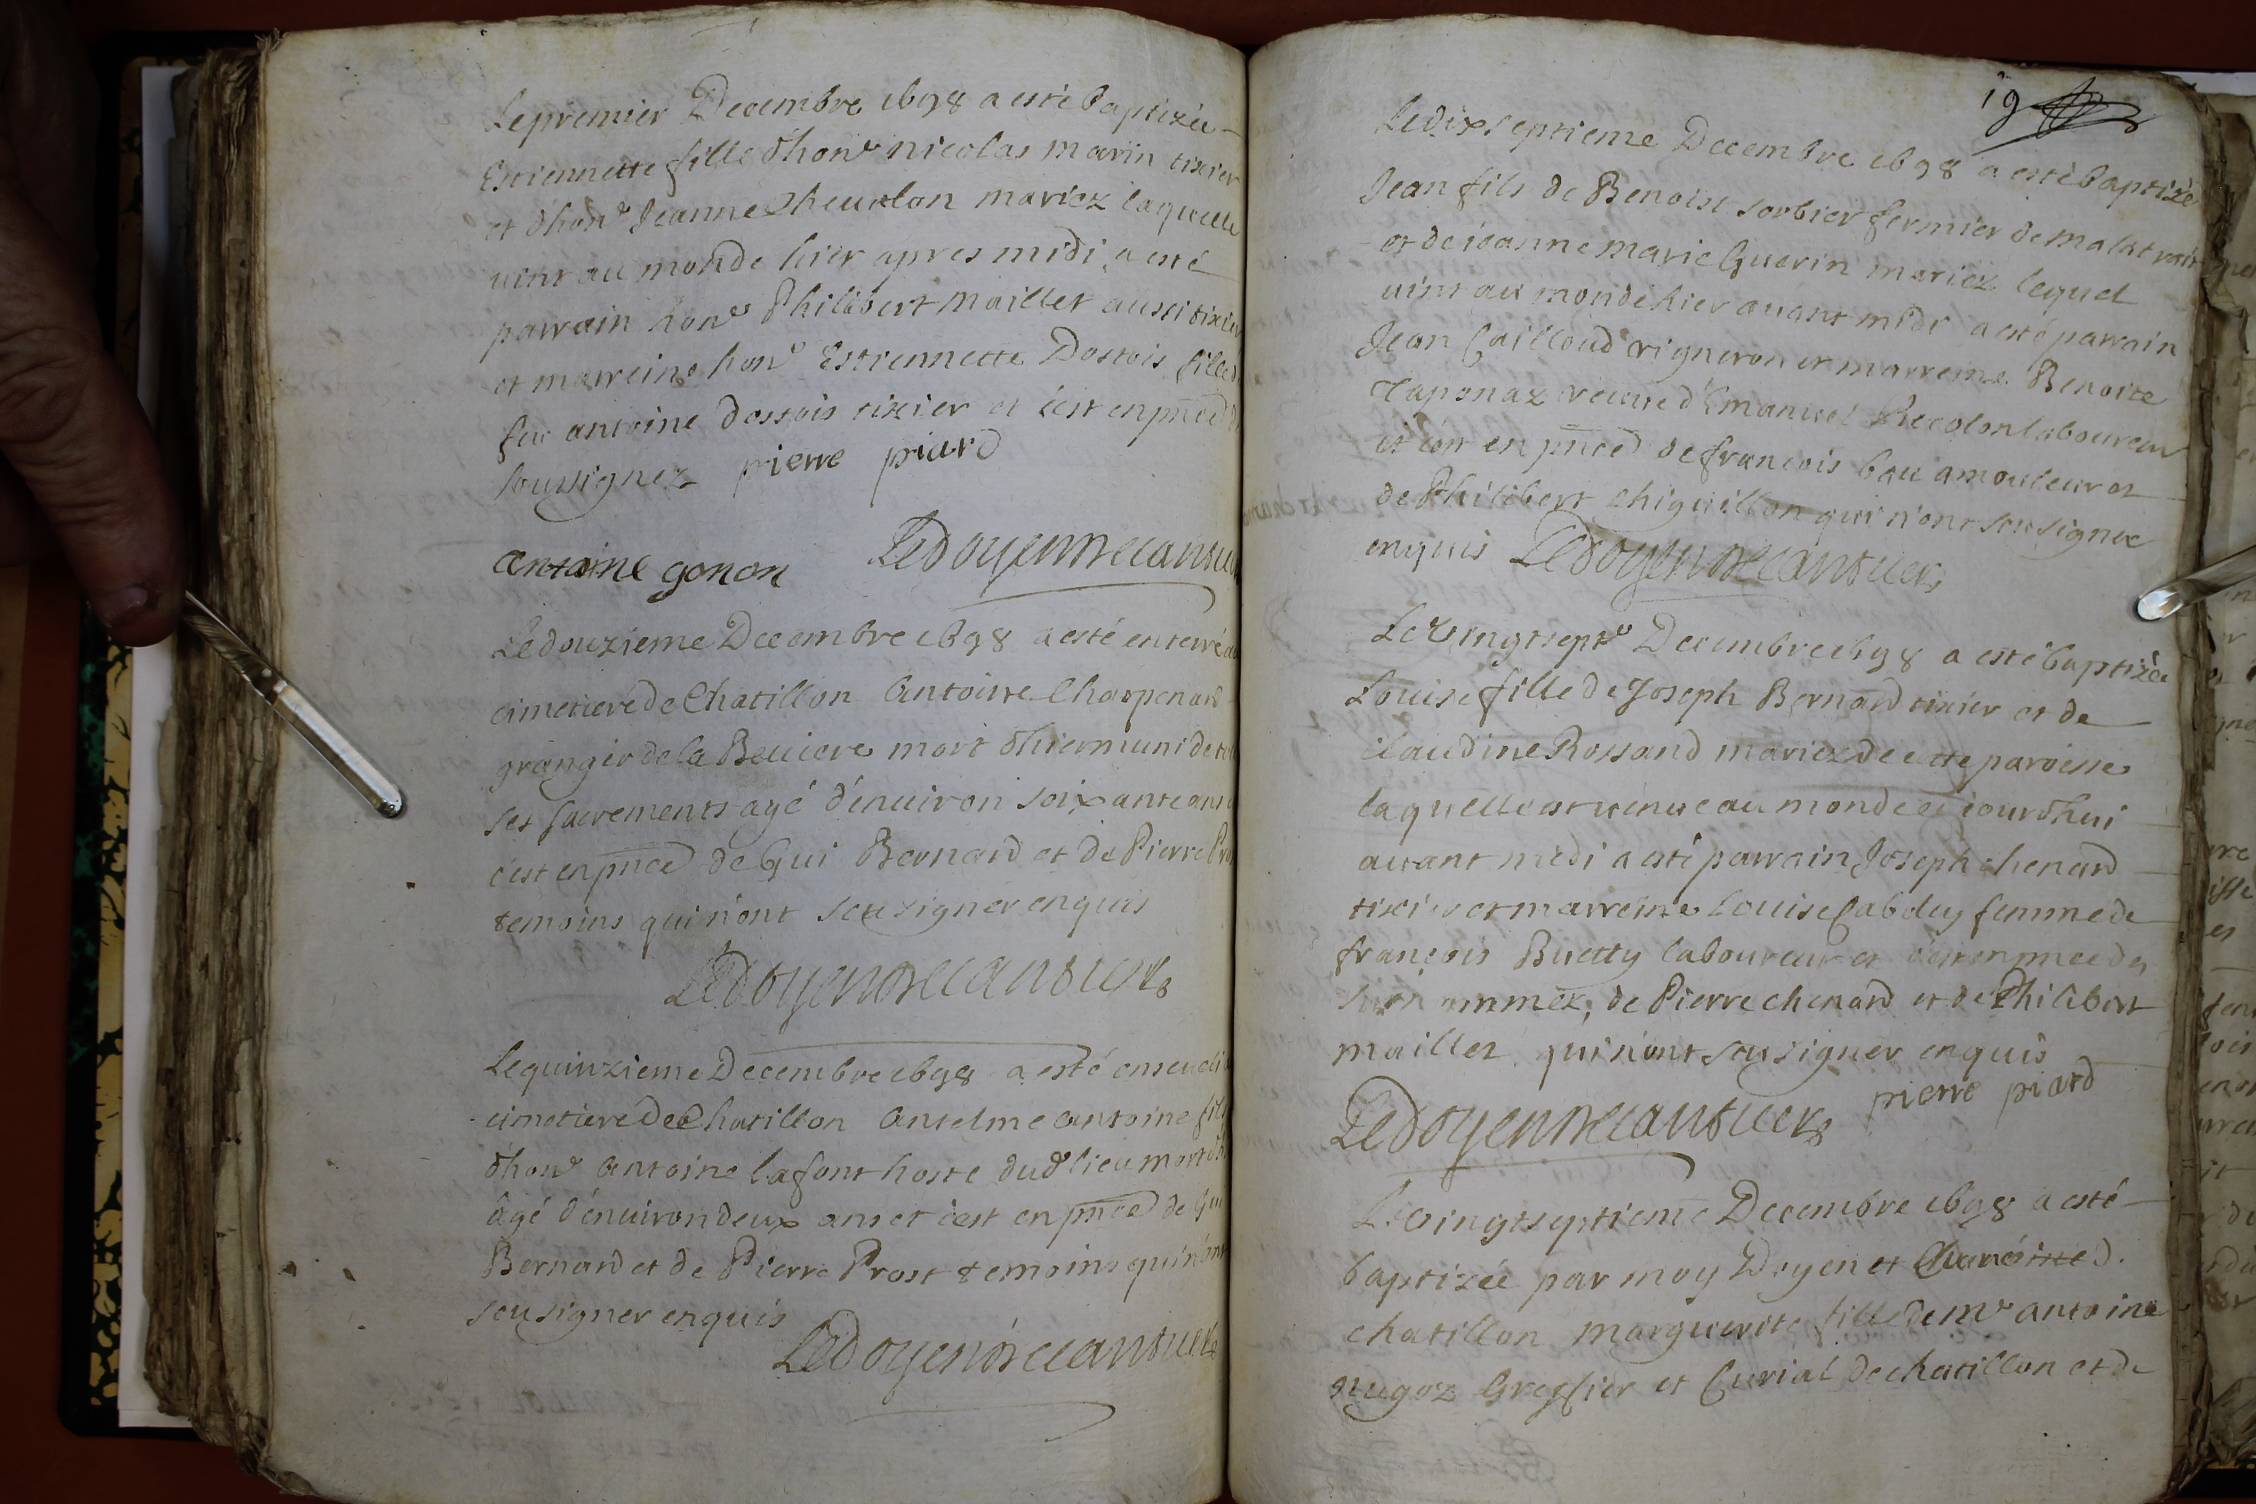 Le premier Decembre 1698 a esté baptizée
Estiennette fille d'honᵉ nicolas marin tixier
et d'honᵉ Jeanne mariez laquelle
vint au monde hier apres midi, a esté
parrain honᵉ Philibert mailler aussi tixier
et marreine honᵉ Estiennette Dostois fille
feu antoine dostois tixier et c'est en pñce d
sousignez pierre piard
antoine gonon Ledoyen
Le douzieme Decembre 1698 a esté enterré au
cimetiere de Chatillon Antoine Charpenard
granger de la Beviere mort d'hier muni de
ses sacrements agé d'enuiron soixante ans
c'est en pñce de Gui Bernard et de Pierre
temoins qui n'ont sceu signer enquis
Ledoyen
Le quinzieme Decembre 1698 a esté enseveli
cimetiere de Chatillon Anselme antoine fils
d'honᵉ Antoine lafont hoste dud lieu mort
âgé d'enuiron deux ans et c'est en pñce de Gui
Bernard et de Pierre Prost temoins qui n'ont
sceu signer enquis
Ledoyen
19
Le dixseptieme Decembre 1698 a esté baptizé
Jean fils de Benoist sorbier fermier de
et de jeanne marie Guerin mariez lequel
vint au monde hier avant midi a esté parrain
Jean Cailloud vigneron et marreine Benoite
Taponaz veuve d'Emanuel laboureur
et c'est en pñce de françois bau amouleur et
de Philibert chiquillon qui n'ont sceu signer
enquis Ledoyen
Le vingtseptᵉ Decembre 1698 a esté baptizée
Louise fille de Joseph Bernard tixier et de
claudine Rossand mariez de cette paroisse
laquelle est venue au monde ce jourd'hui
avant midi a esté parrain Joseph chenard
tixier et marreine Louise femme de
françois Buetty laboureur et c'est en pñce des
nommez, de Pierre chenard et de Philibert
mailler qui n'ont sceu signer enquis
Ledoyen pierre piard
Le vingtseptieme Decembre 1698 a esté
baptizée par moy Doyen et Chanoine d.
chatillon marguerite fille de Mᵉ antoine
nugoz Greffier et Curial de chatillon et de